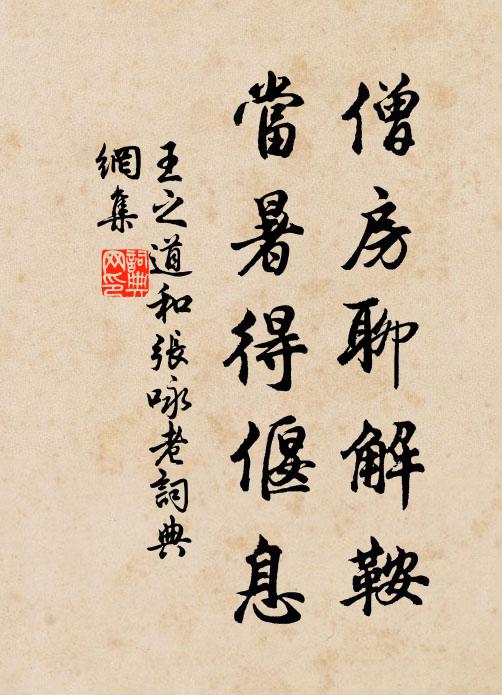 僧房聊解鞍
當暑得偃息
王之道和張咏老詞典
網集
詞典
网印